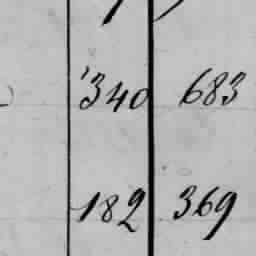 340 683
182 369